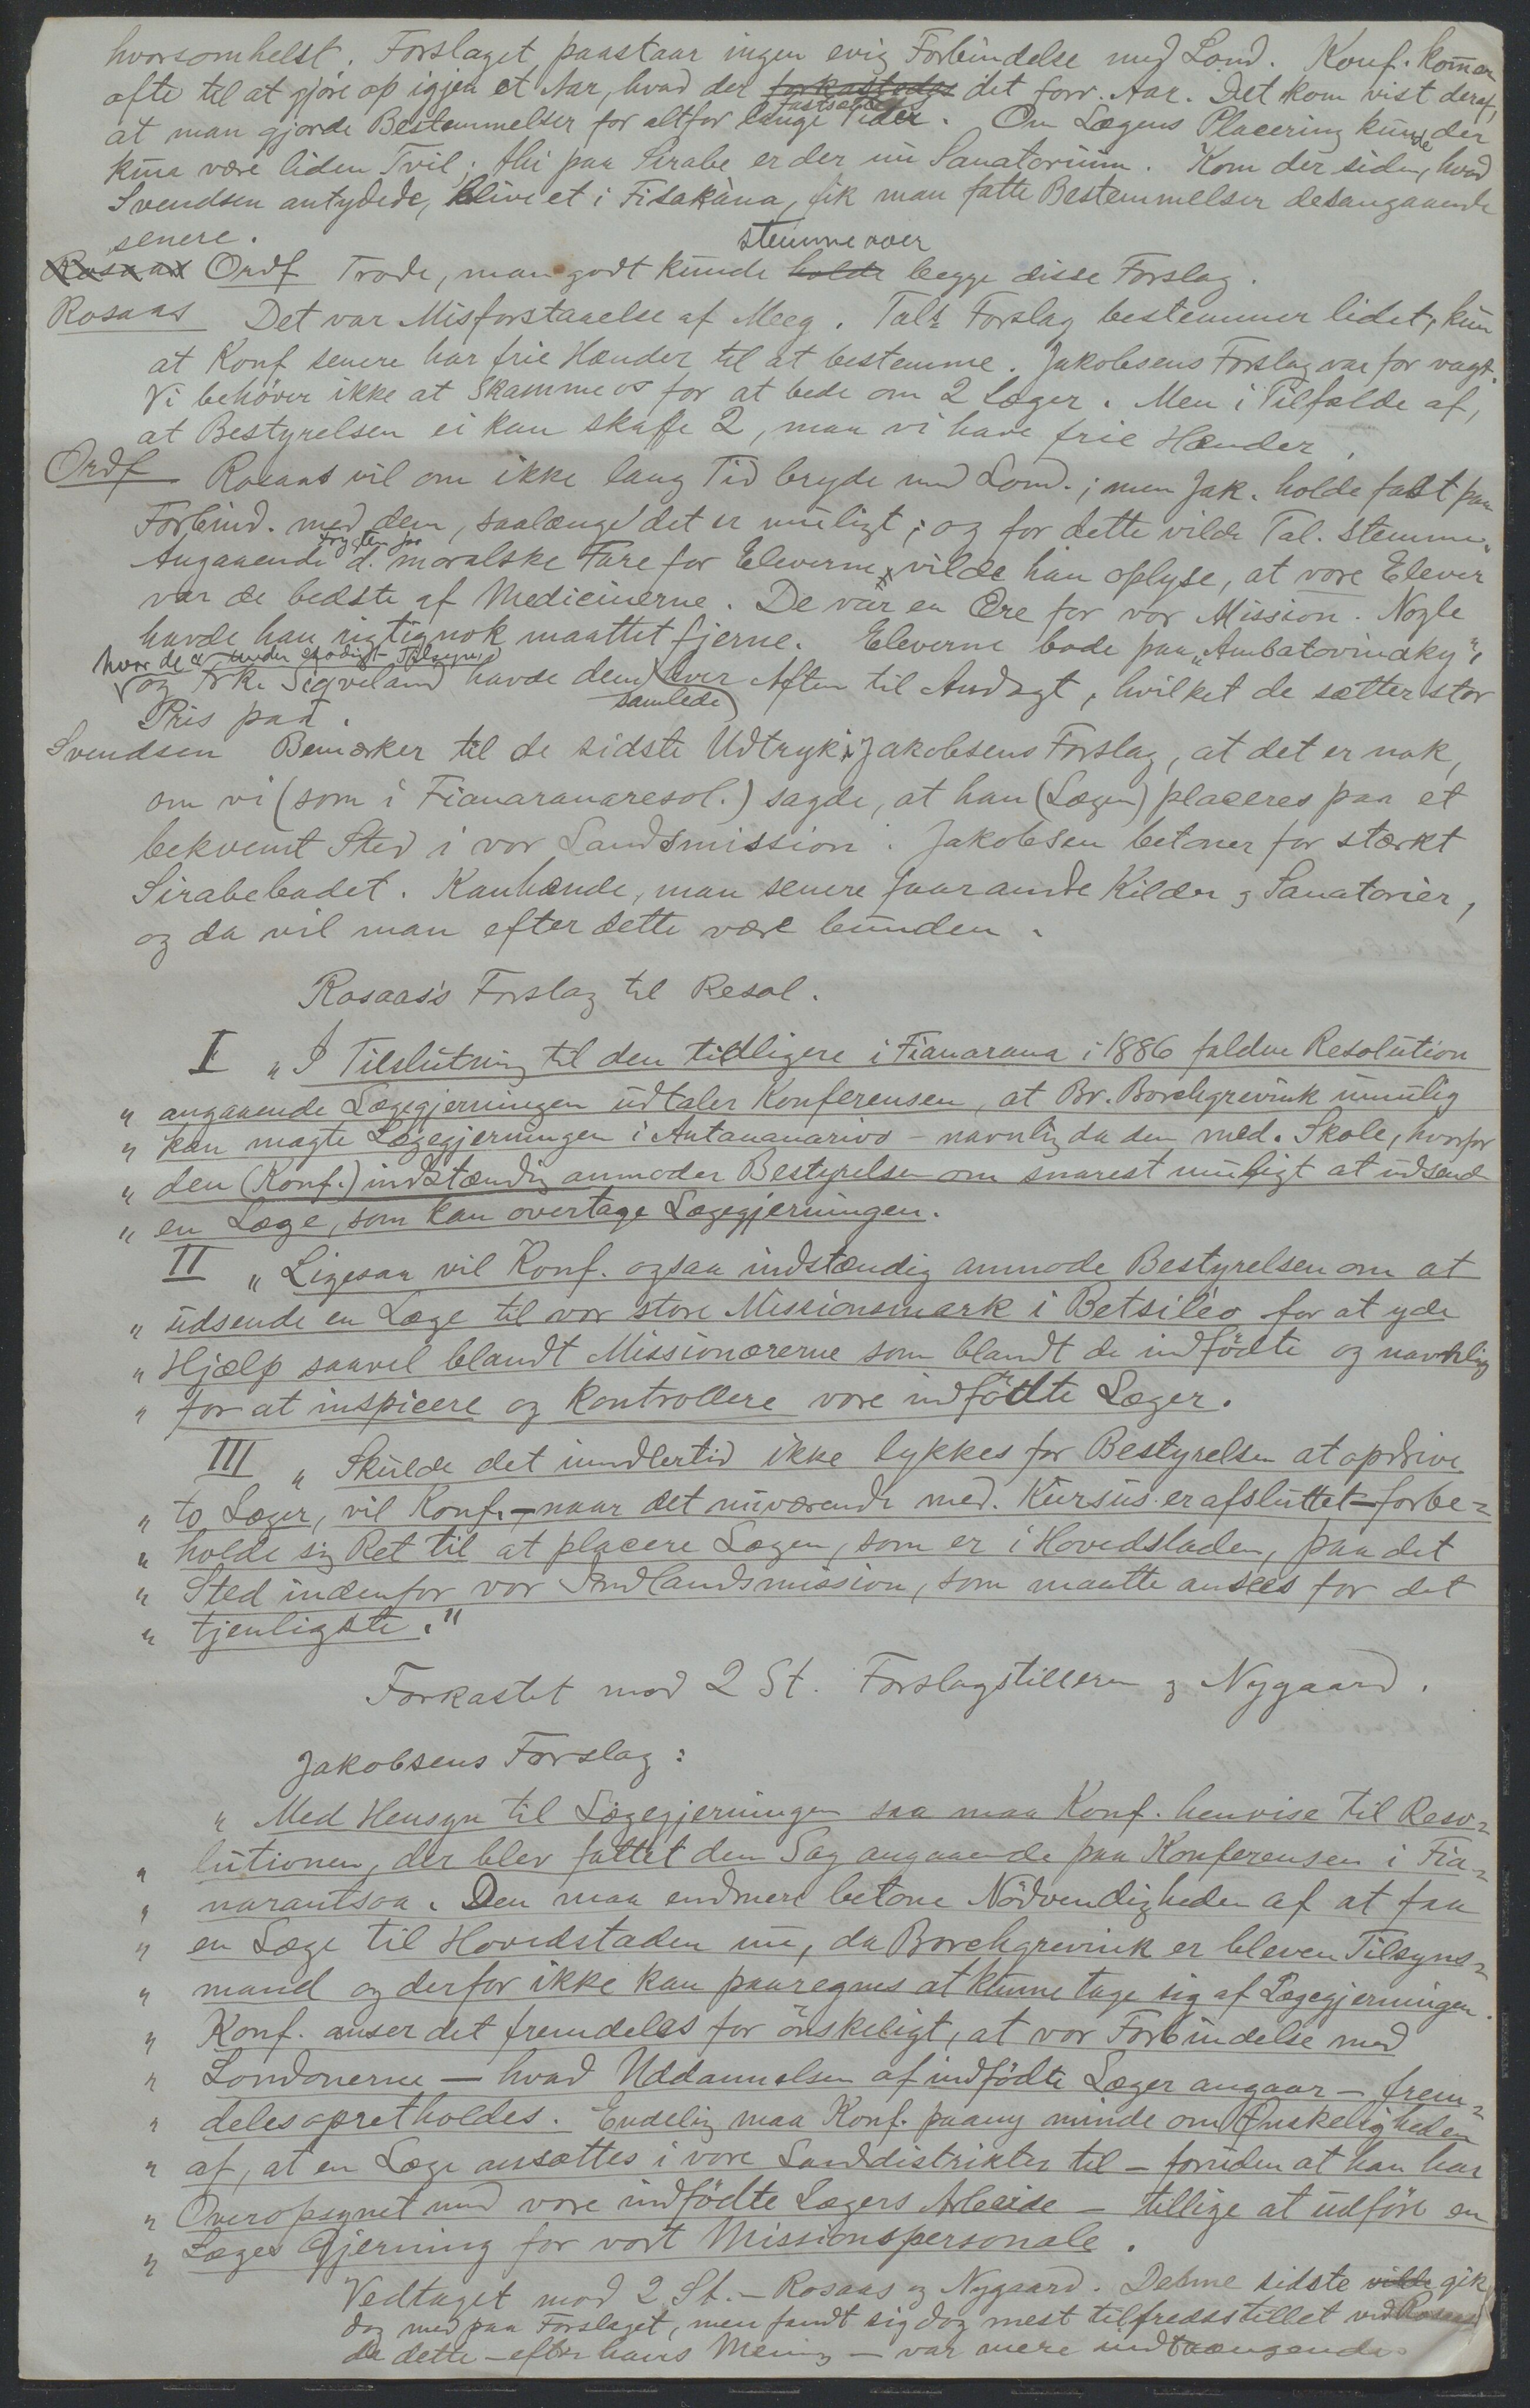 hvorsomhelst. Forslaget paastaar ingen evig Forbindelse med Lond. Konf. kom̄er
ofte til at gjöre op igjen et Aar, hvad der forkastedes det forr. Aar. Det kom vist deraf,
fastsattes
at man gjorde Bestemmelser for altfor lange Tider. Om Lægens Placering kunde der
kun være liden Tvil; thi paa Sirabe er der nu Sanatorium. Kom der siden, hvad
Svendsen antydede, blive et i Fisakana, fik man fatte Bestemmelser desangaaende
senere.
stemme over
Rosaas Ordf Trode, man godt kunde holde begge disse Forslag.
Rosaas Det var Misforstaaelse af Meeg. Tals Forslag bestemmer lidet, kun
at Konf senere har frie Hænder til at bestemme. Jakobsens Forslag var for vagt.
Vi behöver ikke at skamme os for at bede om 2 Læger. Men i Tilfælde af,
at Bestyrelsen ei kan skaffe 2, maa vi have frie Hænder.
Ordf Rosaas vil om ikke lang Tid bryde med Lond.; men Jak. holde fast paa
Forbind. med dem, saalænge det er muligt; og for dette vilde Tal. stemme.
Frygten for
Angaaende d. moralske Fare for Eleverne, vilde han oplyse, at vore Elever
var de bedste af Medicinerne. De var en Ære for vor Mission. Nogle
havde han rigtignok maattet fjerne. Eleverne bode paa „Ambatovinaky",
hvor de er under stadigt Tilsyn,
og Frk. Sigveland havde dem hver Aften til Andagt, hvilket de sætter stor
samlede
Pris paa.
Svendsen Bemærker til de sidste Udtryk i Jakobsens Forslag, at det er nok,
om vi (som i Fianaranaresol.) sagde, at han (Lægen) placeres paa et
bekvemt Sted i vor Landsmission. Jakobsen betoner for stærkt
Sirabebadet. Kanhænde, man senere faar andre Kilder og Sanatorier,
og da vil man efter dette være bunden.
Rosaas's Forslag til Resol.
I „I Tilslutning til den tidligere i Fianarana i 1886 faldne Resolution
„ angaaende Lægegjerningen udtaler Konferensen, at Br. Borchgrevink umulig
„ kan magte Lægegjerningen i Antananarivo – navnlig da den med. Skole, hvorfor
„ den (Konf.) indstændig anmoder Bestyrelsen om snarest muligt at udsende
„ en Læge, som kan overtage Lægegjerningen.
II „ Ligesaa vil Konf. ogsaa indstændig anmode Bestyrelsen om at
„ udsende en Læge til vor store Missionsmark i Betsileo for at yde
„ Hjælp saavel blandt Missionærerne som blandt de indfödte og navnlig
„ for at inspicere og kontrollere vore indfödte Læger.
III „ Skulde det imidlertid ikke lykkes for Bestyrelsen at opdrive
„ to Læger, vil Konf. – naar det nuværende med. Kursus er afsluttet – forbe=
„ holde sig Ret til at placere Lægen, som er i Hovedstaden, paa det
„ Sted indenfor vor Indlandsmission, som maatte ansees for det
„ tjenligste."
Forkastet mod 2 St. Forslagstilleren og Nygaard.
Jakobsens Forslag:
„ Med Hensyn til Lægegjerningen saa maa Konf. henvise til Reso=
„ lutionen, der blev fattet den Sag angaaende paa Konferensen i Fia=
„ narantsoa. Den maa endmere betone Nödvendigheden af at faa
„ en Læge til Hovedstaden nu, da Borchgrevink er bleven Tilsyns=
„ mand og derfor ikke kan paaregnes at kunne tage sig af Lægegjerningen.
„ Konf. anser det fremdeles for önskeligt, at vor Forbindelse med
„ Londonerne – hvad Uddannelsen af indfödte Læger angaar – frem=
„ deles opretholdes. Endelig maa Konf. paany minde om Ønskeligheden
„ af, at en Læge ansættes i vore Landdistrikter til – foruden at han har
„ Overopsynet med vore indfödte Lægers Arbeide – tillige at udföre en
„ Læges Gjerning for vort Missionspersonale.
Vedtaget mod 2 St. – Rosaas og Nygaard. Denne sidste vilde gik
dog med paa Forslaget, men fandt sig dog mest tilfredsstillet ved Rosaas's
da dette – efter hans Mening – var mere indtrængende.